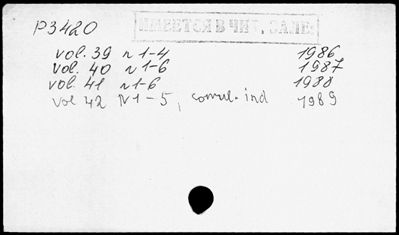 P3420
ИМЕЕТСЯ В ЧИТ. ЗАЛЕ
vol. 39 N 1-4 1986
vol. 40 N 1-6 1987
vol. 41 N 1-6 1988
vol 42 N 1-5, comul. ind 1989